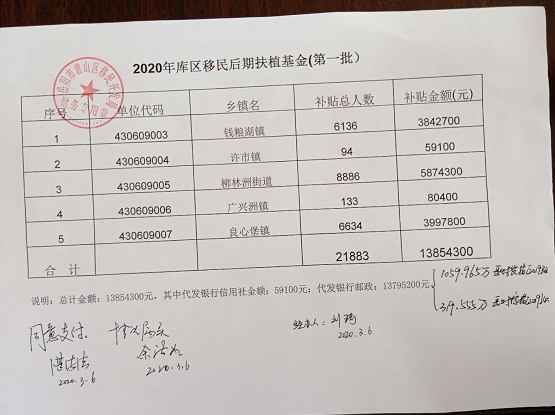 2020年库区移民后期扶植基金(第一批)
岳阳市君山区移民开发局
财务专用章
序号 单位代码 乡镇名 补贴总人数 补贴金额(元)
1 430609003 钱粮湖镇 6136 3842700
2 430609004 许市镇 94 59100
3 430609005 柳林洲街道 8886 5874300
4 430609006 广兴洲镇 133 80400
5 430609007 良心堡镇 6634 3997800
合 计 21883 13854300
说明：总计金额：13854300元，其中代发银行信用社金额：59100元；代发银行邮政：13795200元
1059.965万
319.555万
同意支付
2020.3.6
2020.3.6
经办人：刘
2020.3.6